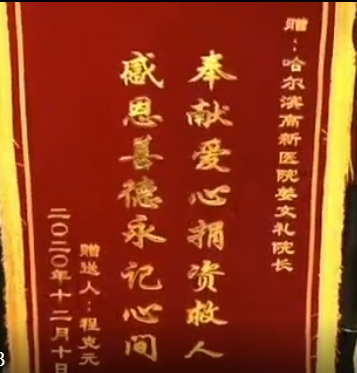 赠：哈尔滨高新医院姜文礼院长
奉献爱心捐资救人
感恩善德永记心间
赠送人：程克元
二〇二〇年十二月十日